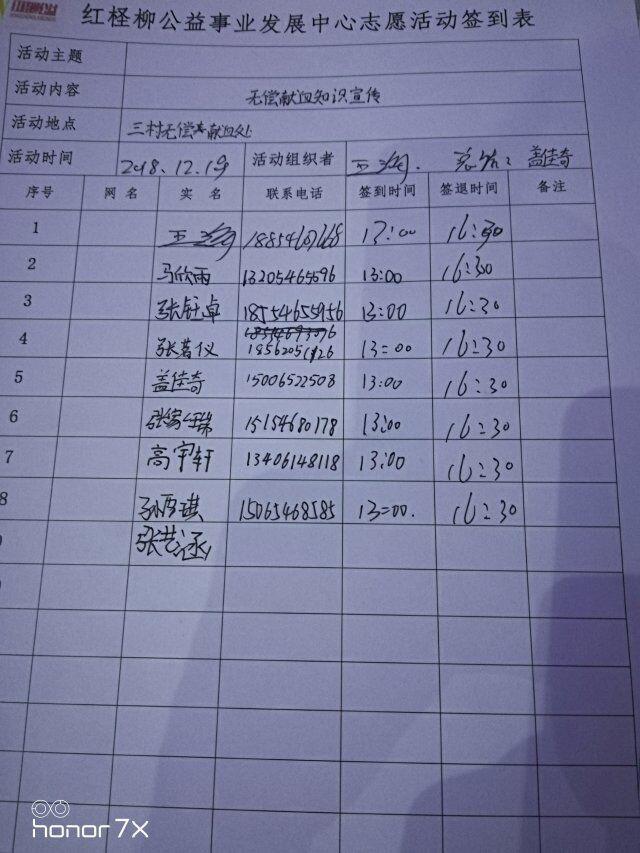 红柽柳公益事业发展中心志愿活动签到表
活动主题
活动内容 无偿献血知识宣传
活动地点 三村无偿献血处
活动时间 2018.12.19 活动组织者 盖佳奇
序号 网名 实名 联系电话 签到时间 签退时间 备注
1 13:00 16:30
2 马欣雨 13205465596 13:00 16:30
3 张钰卓 18554655956 13:00 16:30
4 张茗仪 13:00 16:30
5 盖佳奇 15006522508 13:00 16:30
6 15154680178 13:00 16:30
7 高宇轩 13406148118 13:00 16:30
8 15065468585 13:00. 16:30
张艺涵
honor 7X